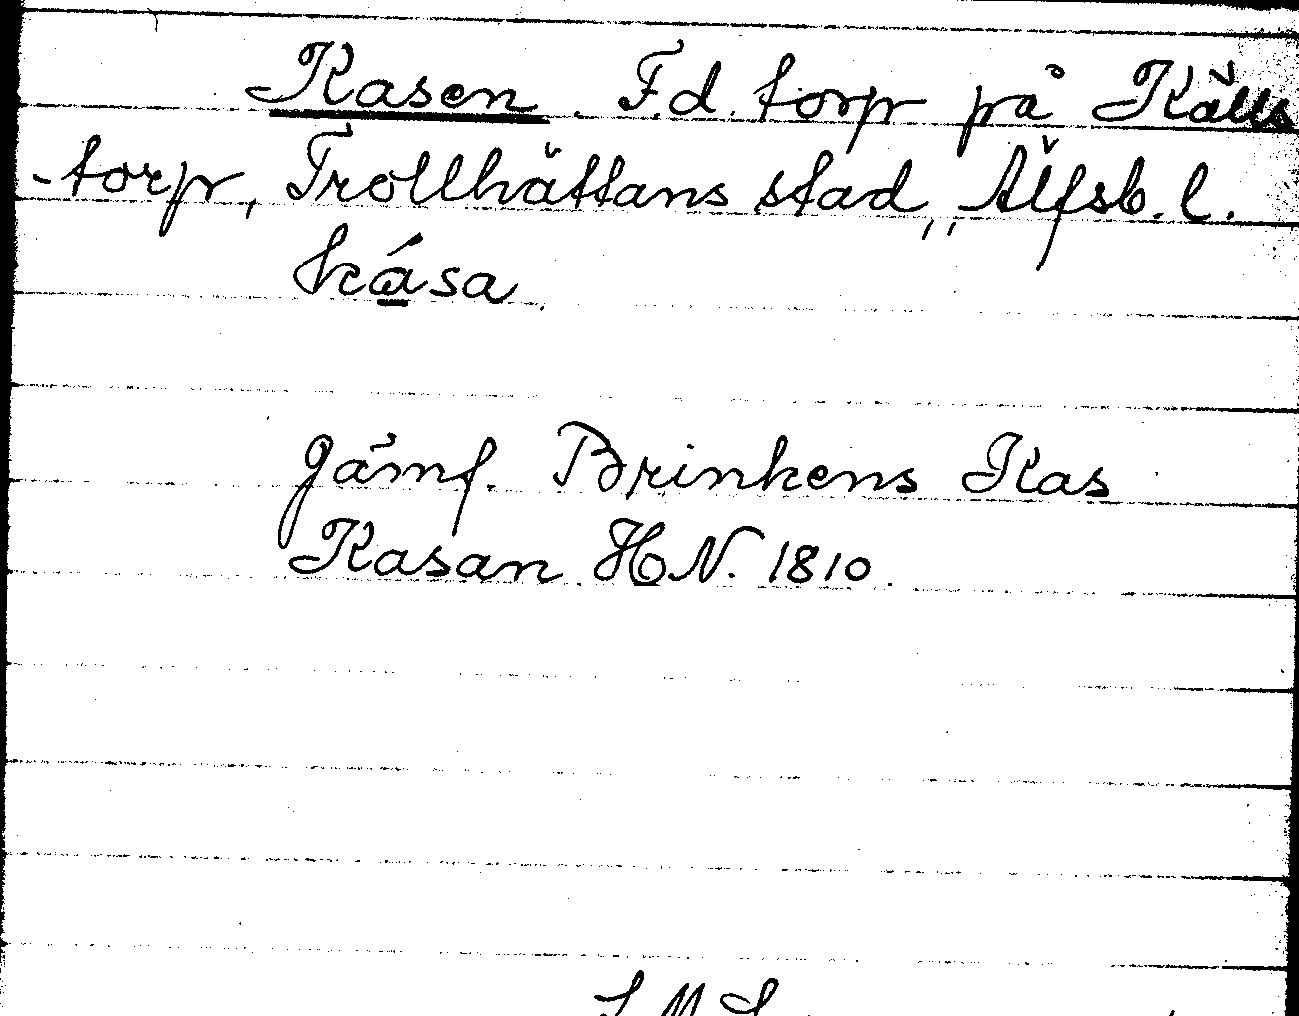 Kasen. F.d. torp på Källs
-torp, Trollhättans stad, Älfsb. l.
kása.
Jämf. Brinkens Kas
Kasan HN. 1810.